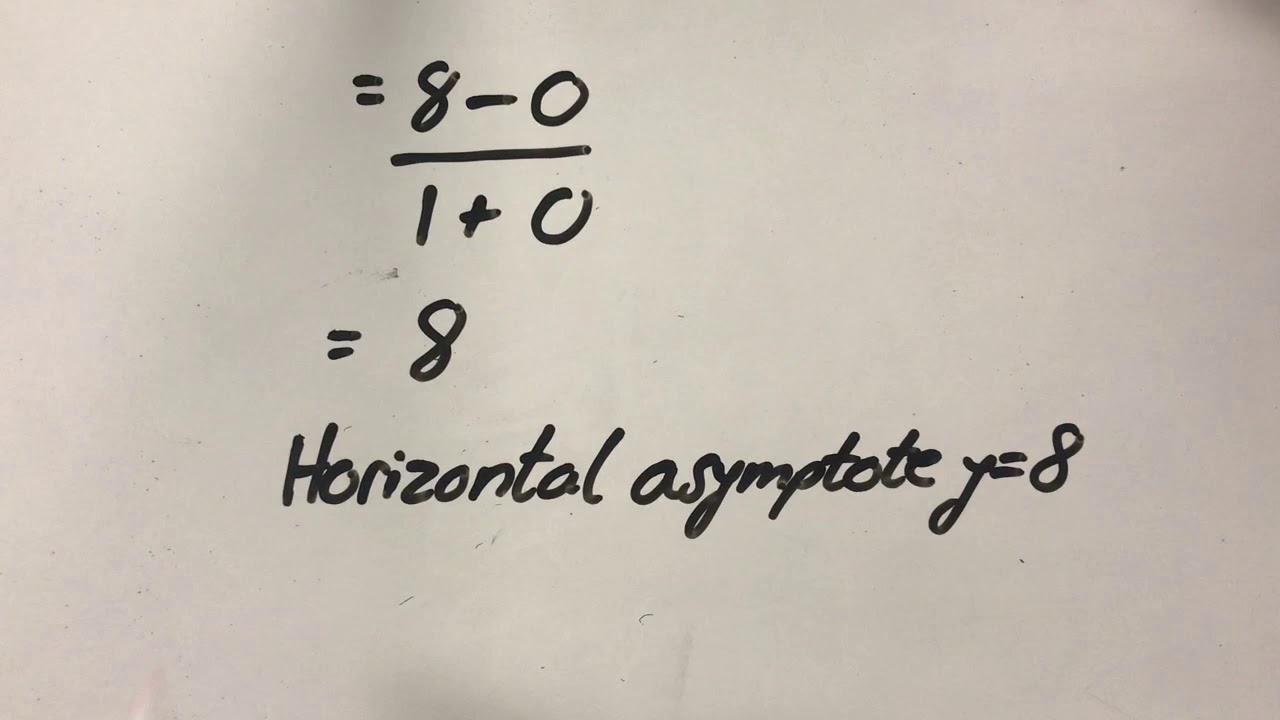 = 8 - 0
1 + 0
= 8
Horizontal asymptote y=8